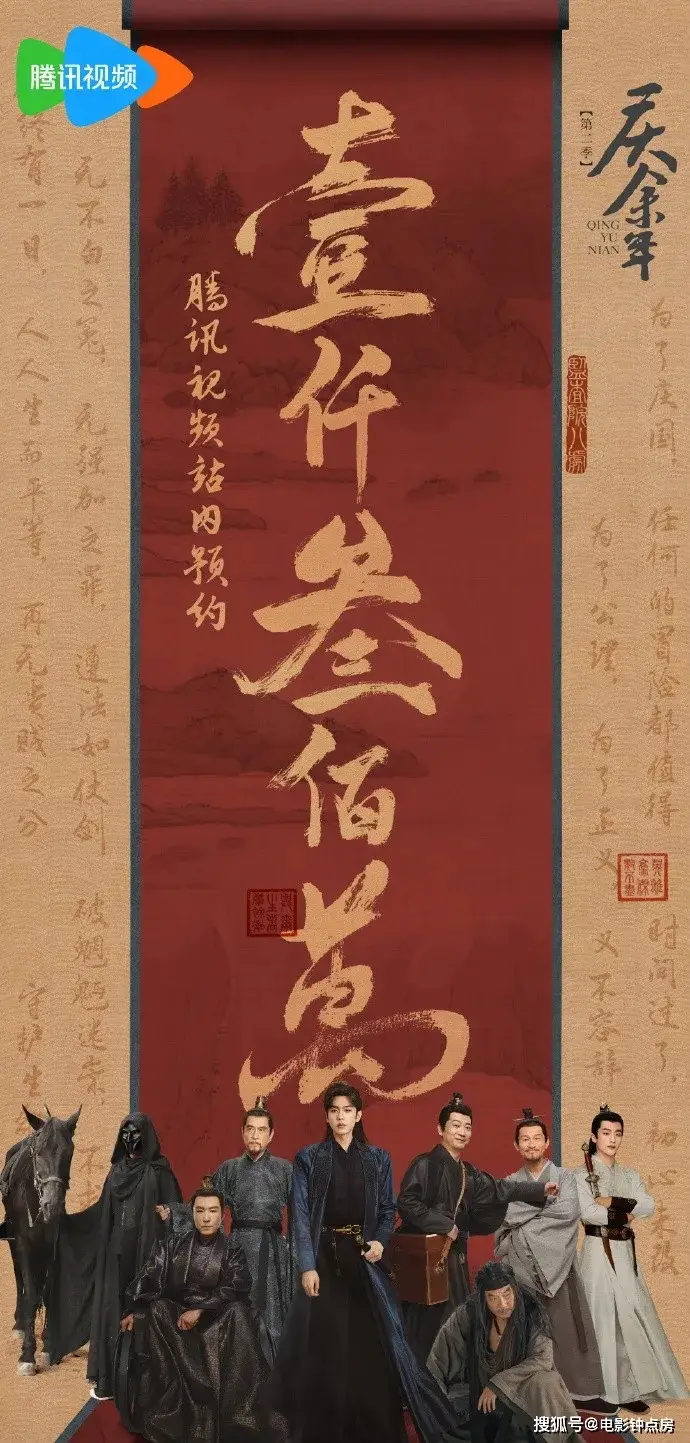 腾讯视频
庆余年
【第二季】
QING
YU
NIAN
壹仟叁佰萬
腾讯视频站内预约
监查院八處
为了庆国，任何的冒险都值得
为了公理，为了正义，义不容辞
时间过了，初心未改
无不白之冤，无强加之罪，遵法如仗剑，破魍魉迷祟，不
终有一日，人人生而平等，再无贵贱之分
守护生
搜狐号@电影钟点房